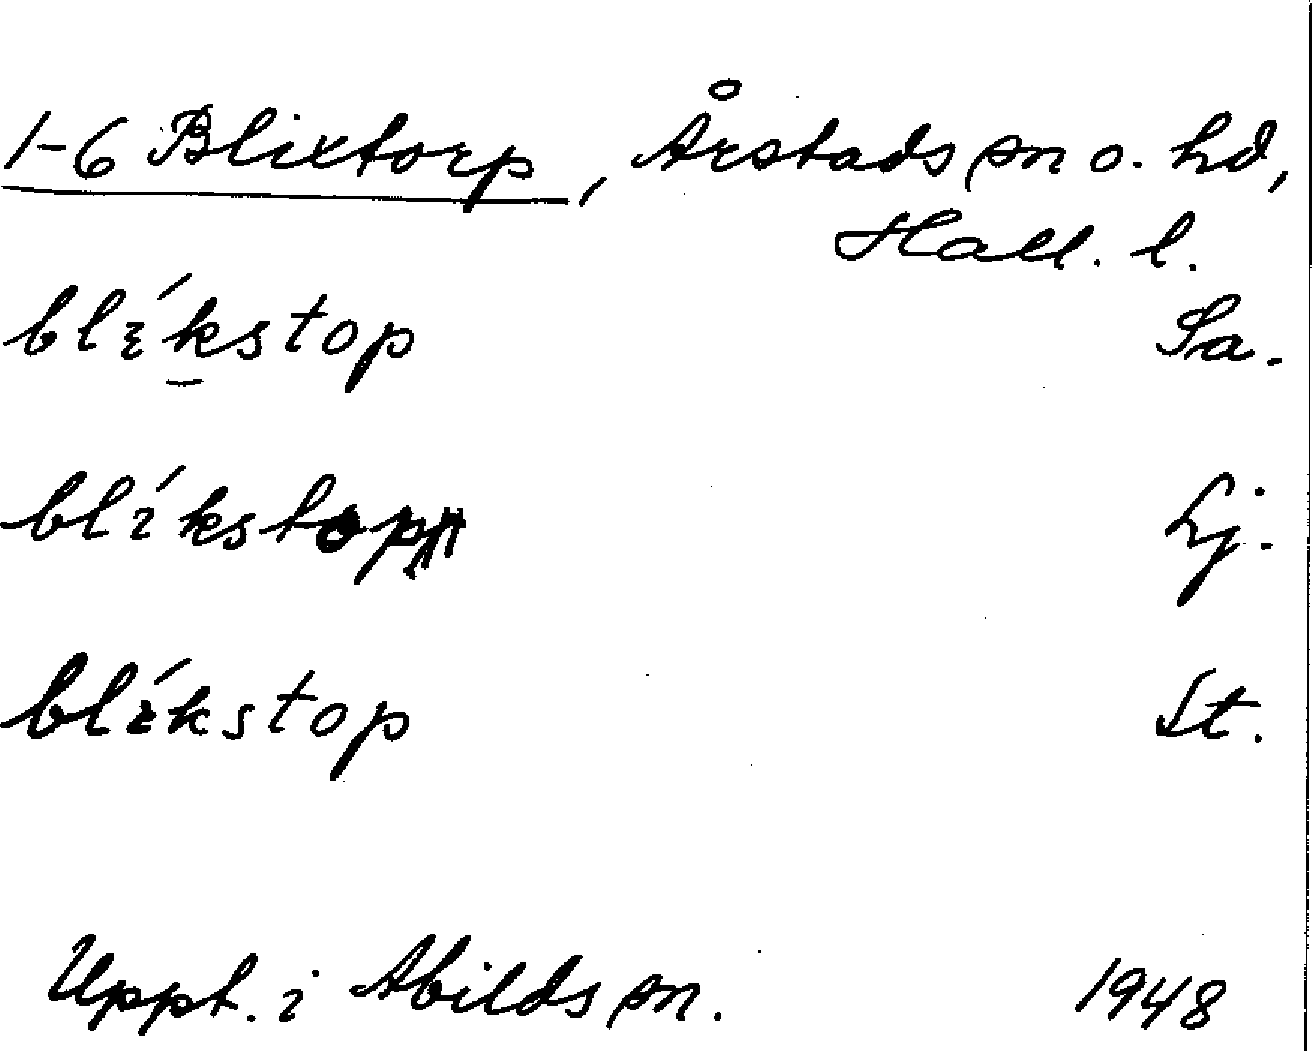 1-6 Blixtorp, Årstads sn o. hd,
Hall. l.
blíkstop Sa.
blíkstop Lj.
blíkstop St.
Uppt. i Abilds sn. 1948